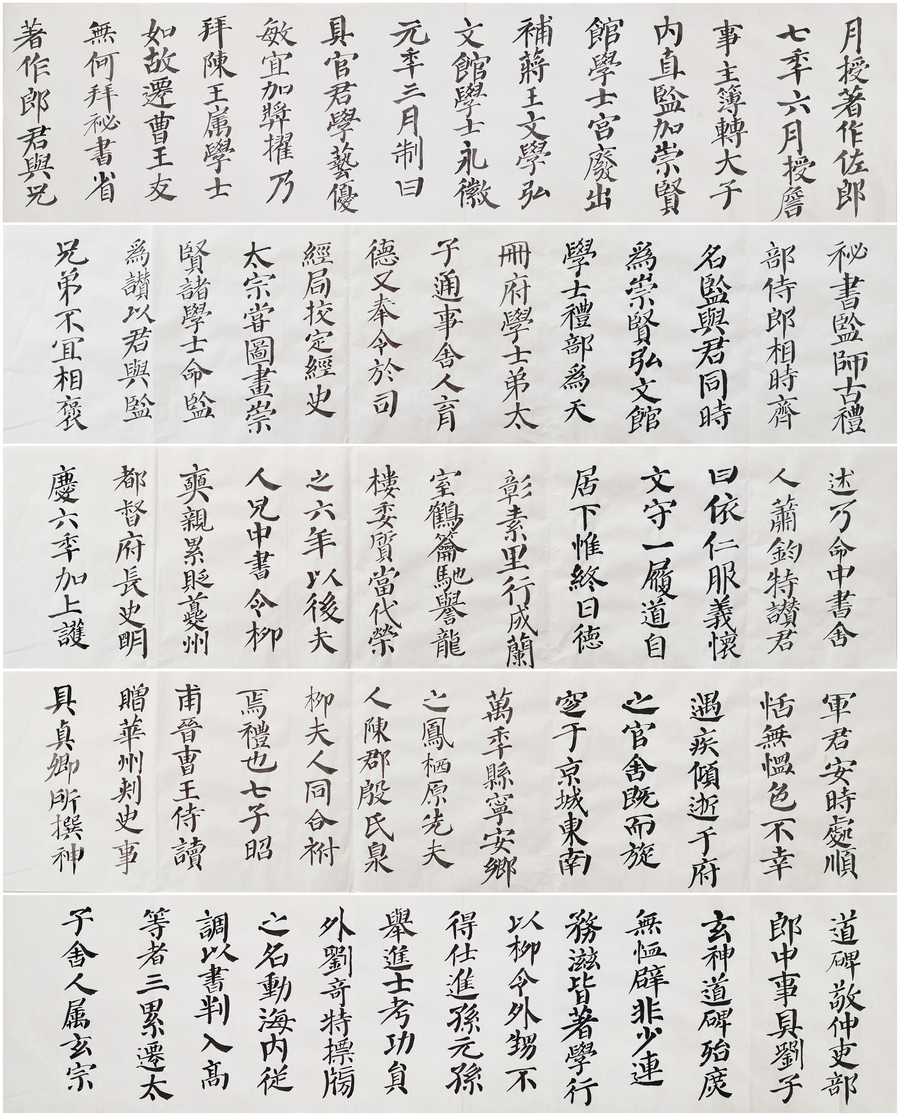 月授著作佐郎
七秊六月授詹
事主簿轉大子
内直監加崇賢
館學士宮廢出
補蔣王文學弘
文館學士永徽
元秊三月制曰
具官君學藝優
敏宜加獎擢乃
拜陳王属學士
如故遷曹王友
無何拜祕書省
著作郎君與兄
祕書監師古禮
部侍郎相時齊
名監與君同時
為崇賢弘文館
學士禮部為天
冊府學士弟太
子通事舍人育
德又奉令於司
經局校定經史
太宗嘗圖畫崇
賢諸學士命監
為讃以君與監
兄弟不宜相褒
述乃命中書舍
人蕭鈞特讃君
曰依仁服義懷
文守一履道自
居下惟終日德
彰素里行成蘭
室鶴籥馳譽龍
樓委質當代榮
之六年以後夫
人兄中書令柳
奭親累貶夔州
都督府長史明
慶六秊加上護
軍君安時處順
恬無慍色不幸
遇疾傾逝于府
之官舍既而旋
窆于京城東南
萬秊縣寧安鄉
之鳳栖原先夫
人陳郡殷氏泉
柳夫人同合祔
焉禮也七子昭
甫晉曹王侍讀
贈華州刺史事
具真卿所撰神
道碑敬仲吏部
郎中事具劉子
玄神道碑殆庶
無恤辟非少連
務滋皆著學行
以柳令外甥不
得仕進孫元孫
舉進士考功員
外劉奇特摽牓
之名動海内従
調以書判入高
等者三累遷太
子舍人属玄宗